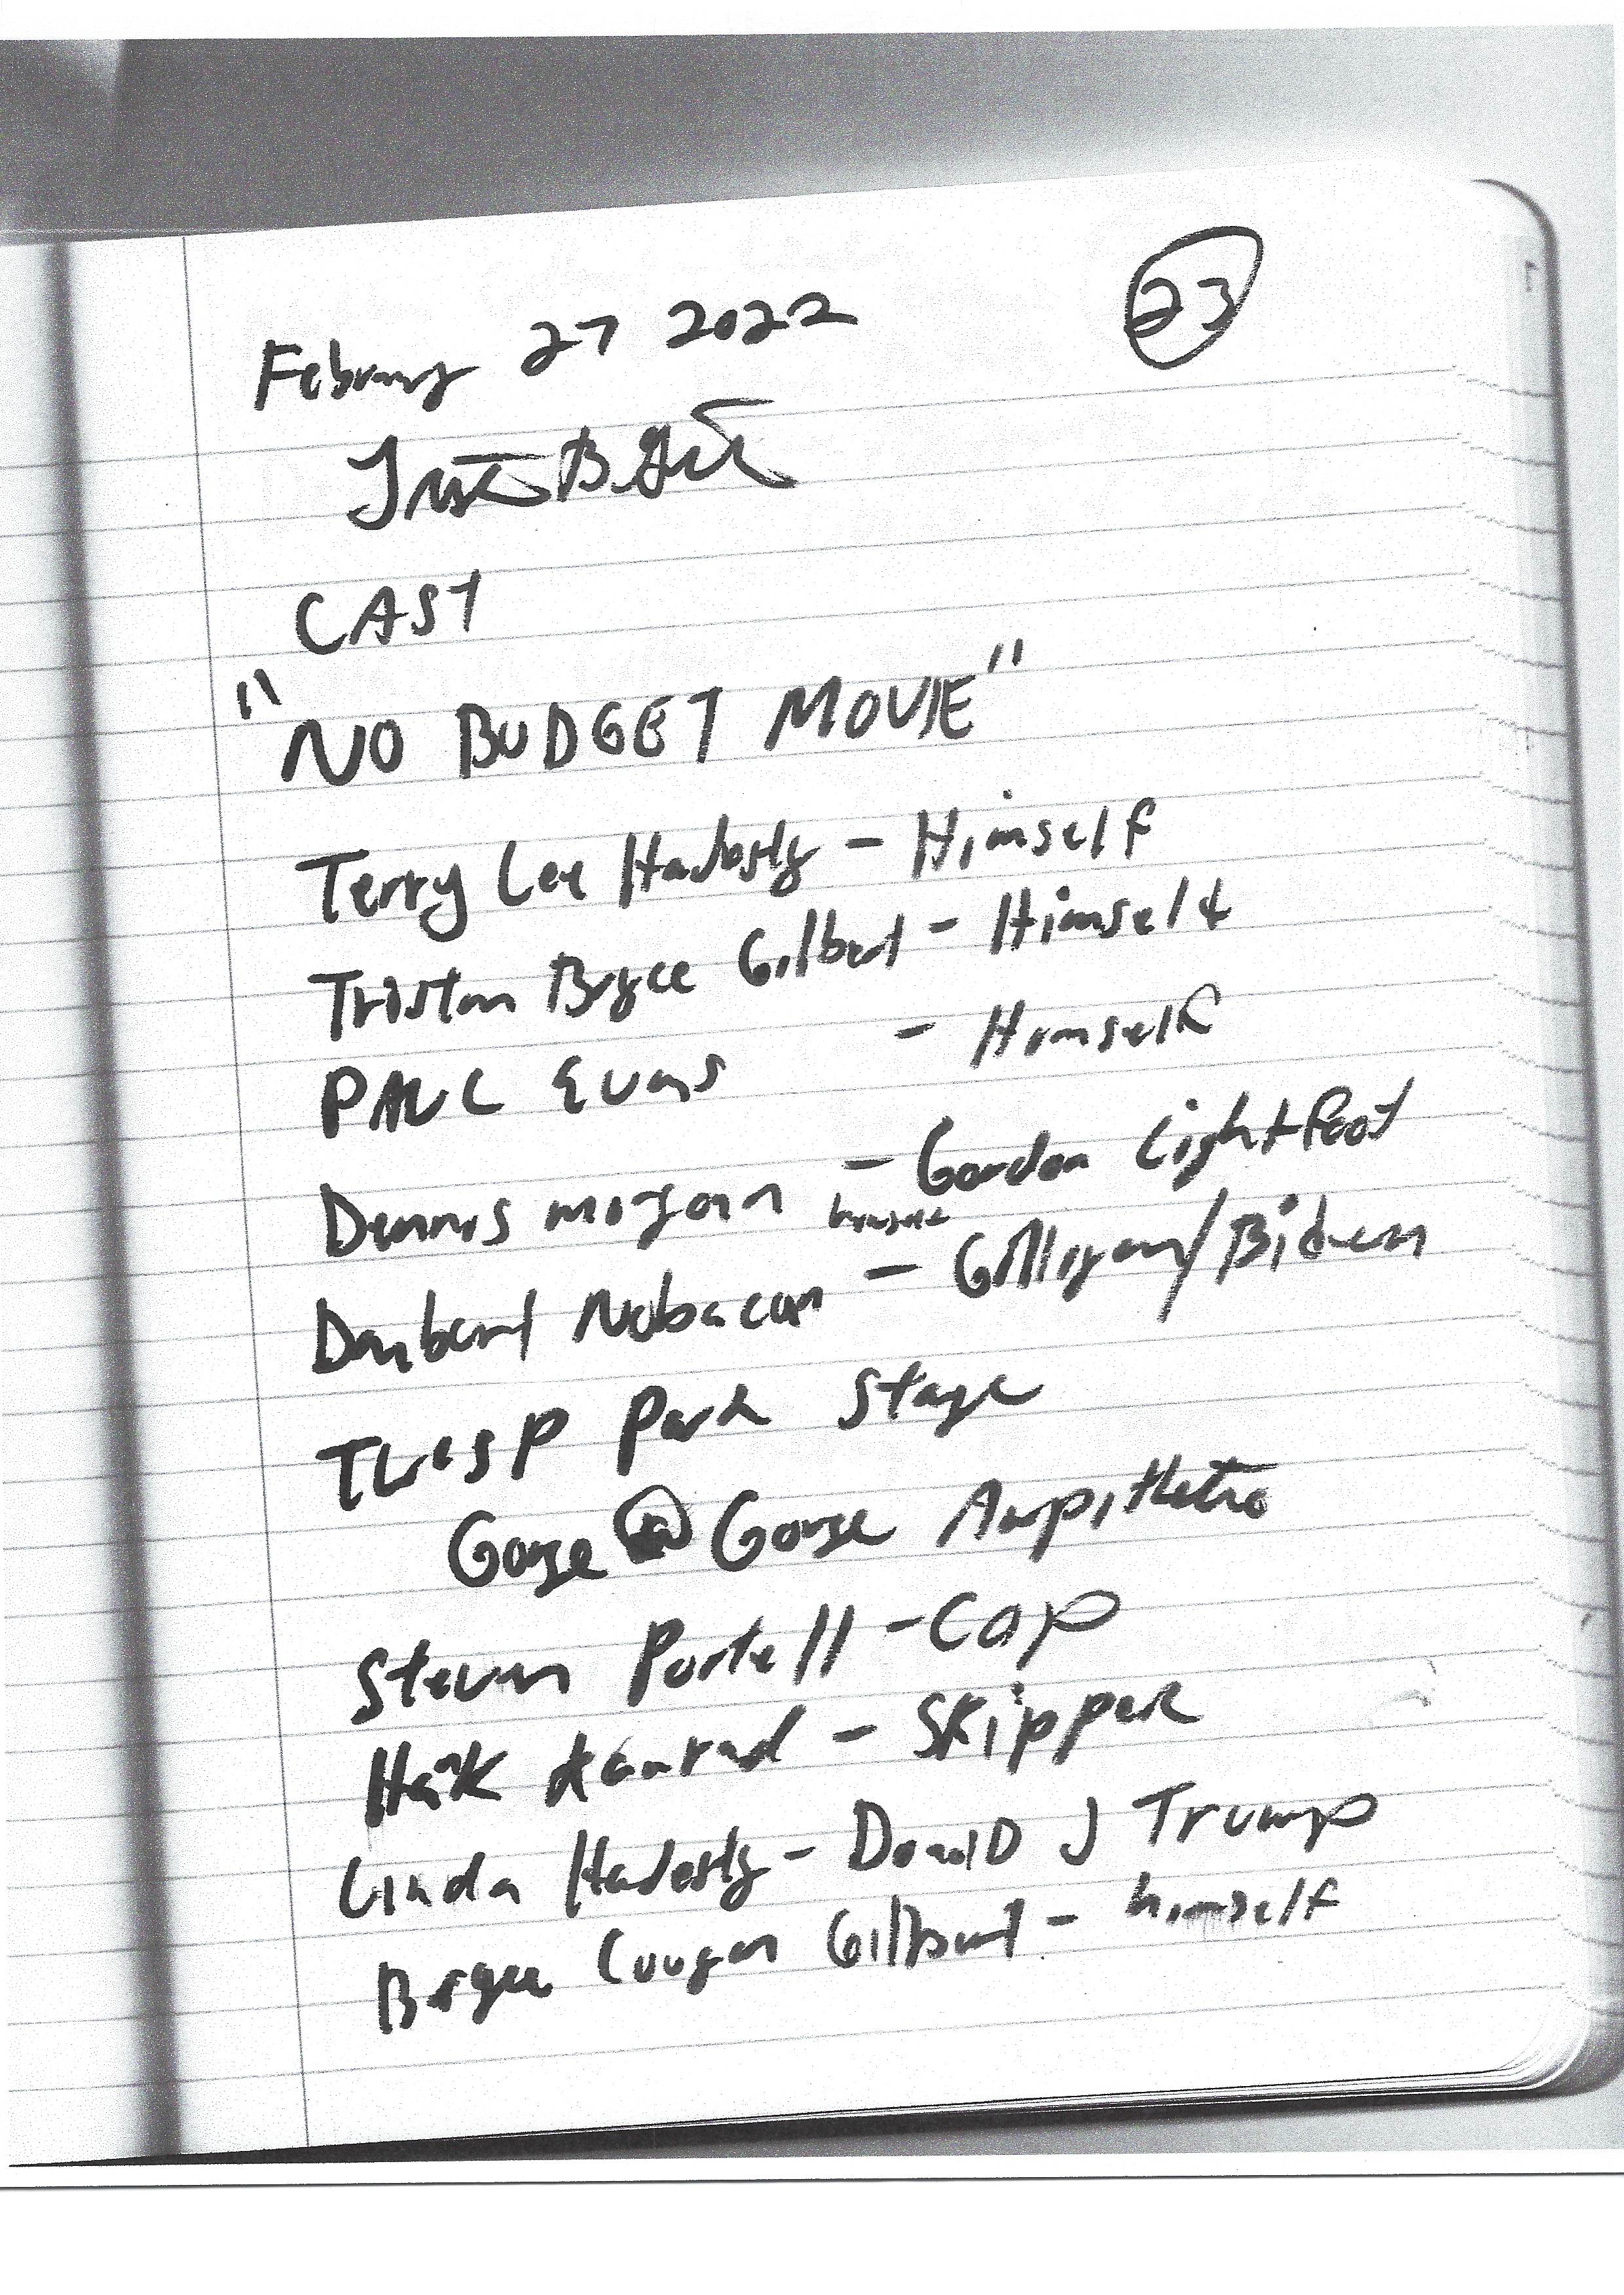 23
February 27 2022
CAST
"NO BUDGET MOVIE"
Terry Lee Hadesty - Himself
Tristan Bryce Gilbert - Himself
PAUL Evans - Himself
Dennis morgan - Gordon Lightfoot
himself
Danbert Nobacon - Gilligan/Biden
Thesp Park Stage
Gorge @ Gorge Ampitheatre
Steven Portell - Cop
Konrad - Skipper
Linda Hadesty - Donald J Trump
Bryce Cougar Gilbert - himself